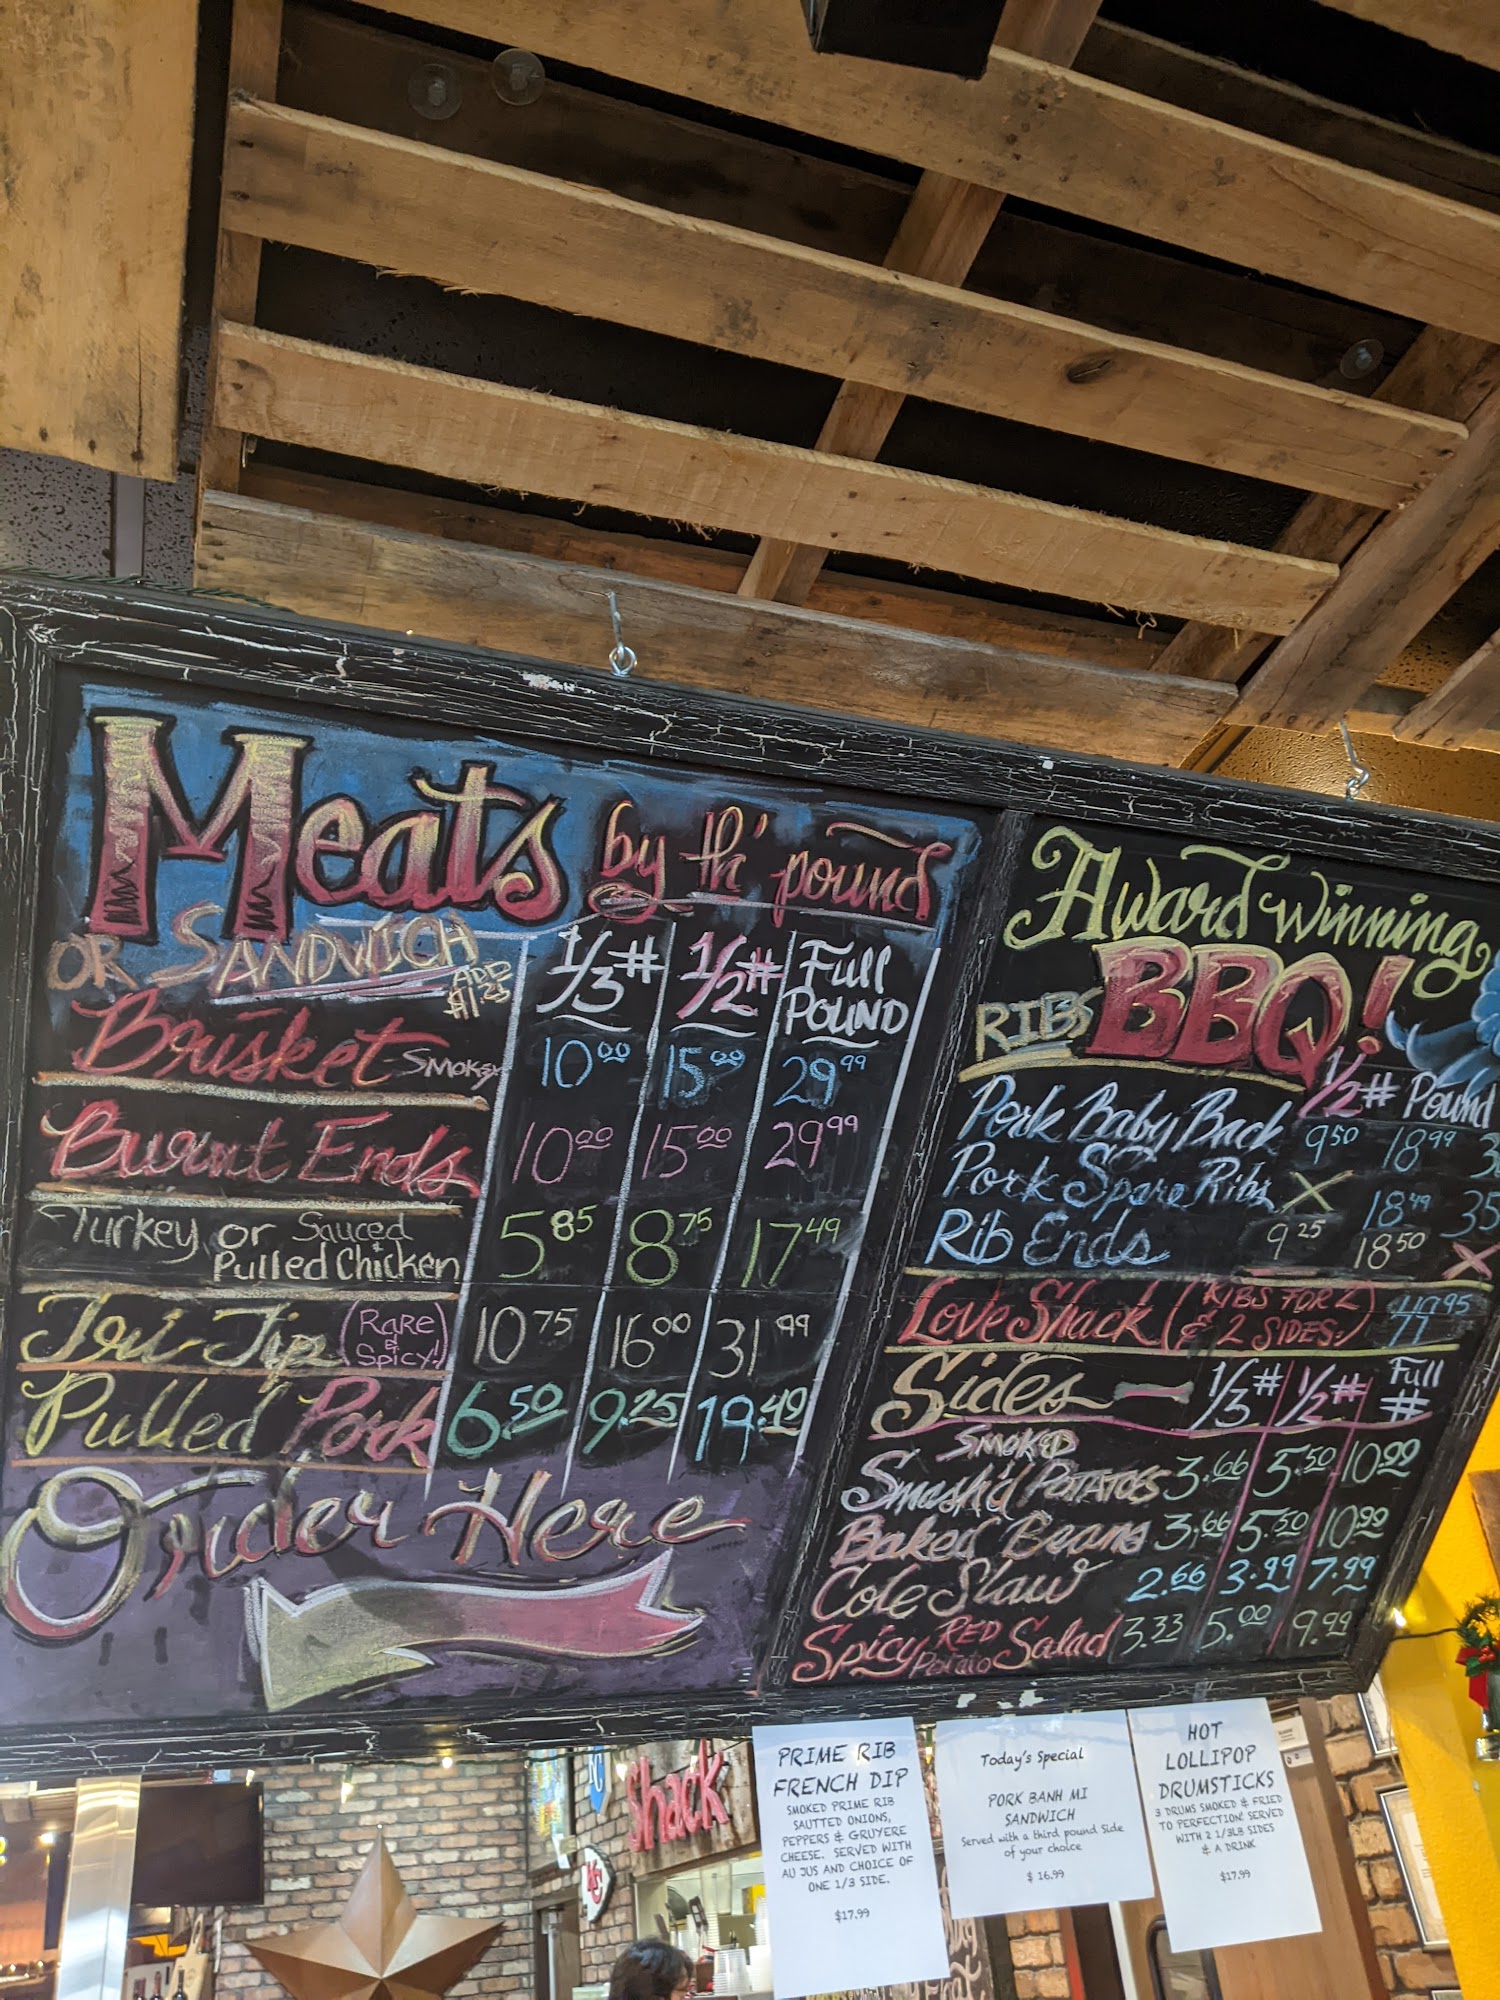 Meats by th' pound
OR SANDWICH ADD $1.25
1/3# 1/2# Full POUND
Brisket SMOKEY 10.00 15.00 29.99
Burnt Ends 10.00 15.00 29.99
Turkey or Sauced & Pulled Chicken 5.85 8.75 17.49
Tri-Tip (RARE & SPICY!) 10.75 16.00 31.99
Pulled Pork 6.50 9.25 19.49
Order Here
Award Winning
RIBS BBQ!
1/2# Pound
Pork Baby Back 9.50 18.99
Pork Spare Ribs X 18.49 35
Rib Ends 9.25 18.50 X
Love Shack (RIBS FOR 2 & 2 SIDES.)
Sides - 1/3# 1/2# Full #
SMOKED
Smash'd POTATOES 3.66 5.50 10.99
Baked Beans 3.66 5.50 10.99
Cole Slaw 2.66 3.99 7.99
Spicy RED Potato Salad 3.33 5.00 9.99
PRIME RIB
FRENCH DIP
SMOKED PRIME RIB
SAUTTED ONIONS,
PEPPERS & GRUYERE
CHEESE. SERVED WITH
AU JUS AND CHOICE OF
ONE 1/3 SIDE.
$17.99
Today's Special
PORK BANH MI
SANDWICH
Served with a third pound Side
of your choice
$ 16.99
HOT
LOLLIPOP
DRUMSTICKS
3 DRUMS SMOKED & FRIED
TO PERFECTION! SERVED
WITH 2 1/3LB SIDES
& A DRINK
$17.99
Shack
KC